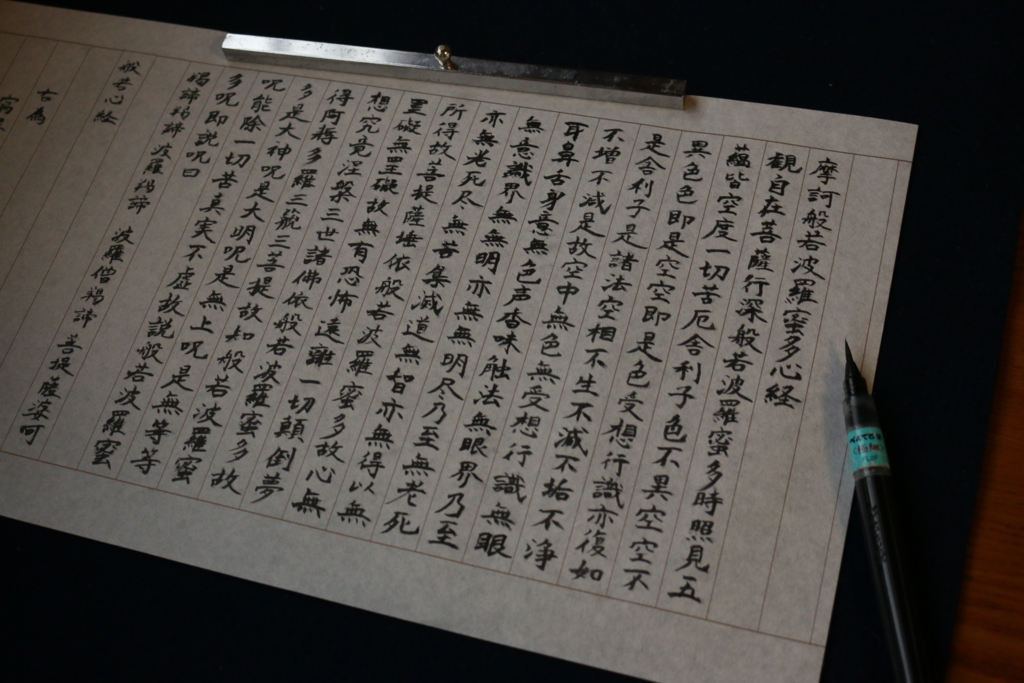 摩訶般若波羅蜜多心経
観自在菩薩行深般若波羅蜜多時照見五
蘊皆空度一切苦厄舎利子色不異空空不
異色色即是空空即是色受想行識亦復如
是舎利子是諸法空相不生不滅不垢不浄
不増不減是故空中無色無受想行識無眼
耳鼻舌身意無色声香味触法無眼界乃至
無意識界無無明亦無無明尽乃至無老死
亦無老死尽無苦集滅道無智亦無得以無
所得故菩提薩埵依般若波羅蜜多故心無
罣礙無罣礙故無有恐怖遠離一切顛倒夢
想究竟涅槃三世諸佛依般若波羅蜜多故
得阿耨多羅三藐三菩提故知般若波羅蜜
多是大神呪是大明呪是無上呪是無等等
呪能除一切苦真実不虚故説般若波羅蜜
多呪即説呪曰
羯諦羯諦 波羅羯諦 波羅僧羯諦 菩提薩婆訶
般若心経
右為